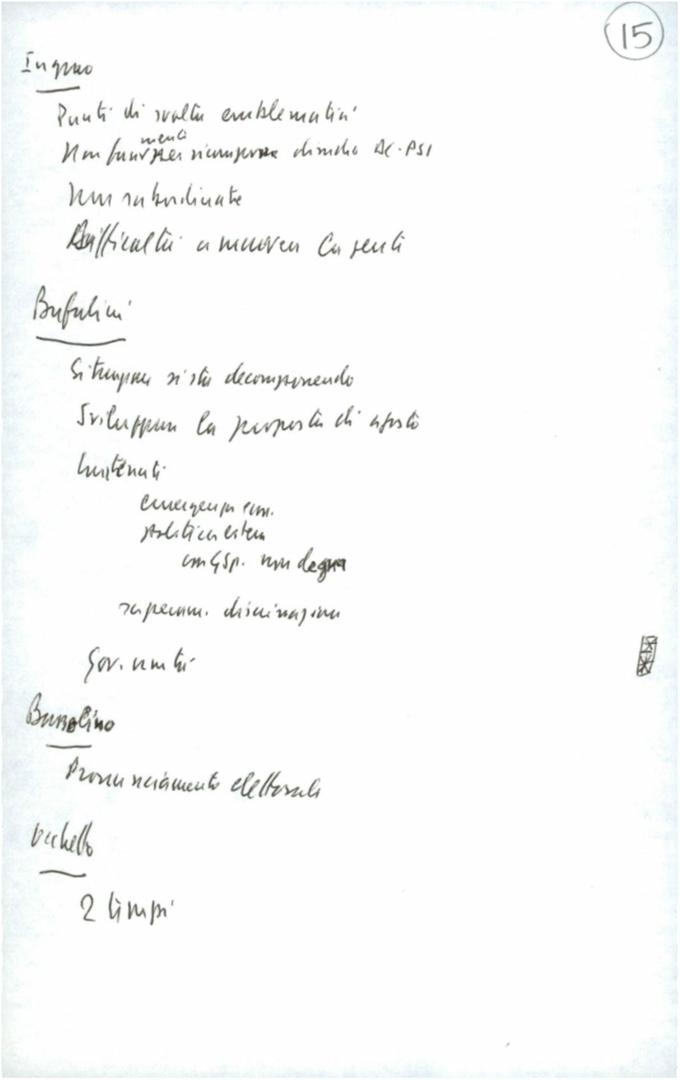 15
Ingrao
Punti di svolta emblematici
Non
menti
DC-PSI
Non subordinate
Difficoltà a muovere la gente
Bufalini
Situazione si sta decomponendo
Sviluppare la proposta di agosto
Contenuti
emergenza
politica estera
non
superam. discriminazione
Gov. unità
Bassolino
Pronunciamento elettorale
Occhetto
2 tempi